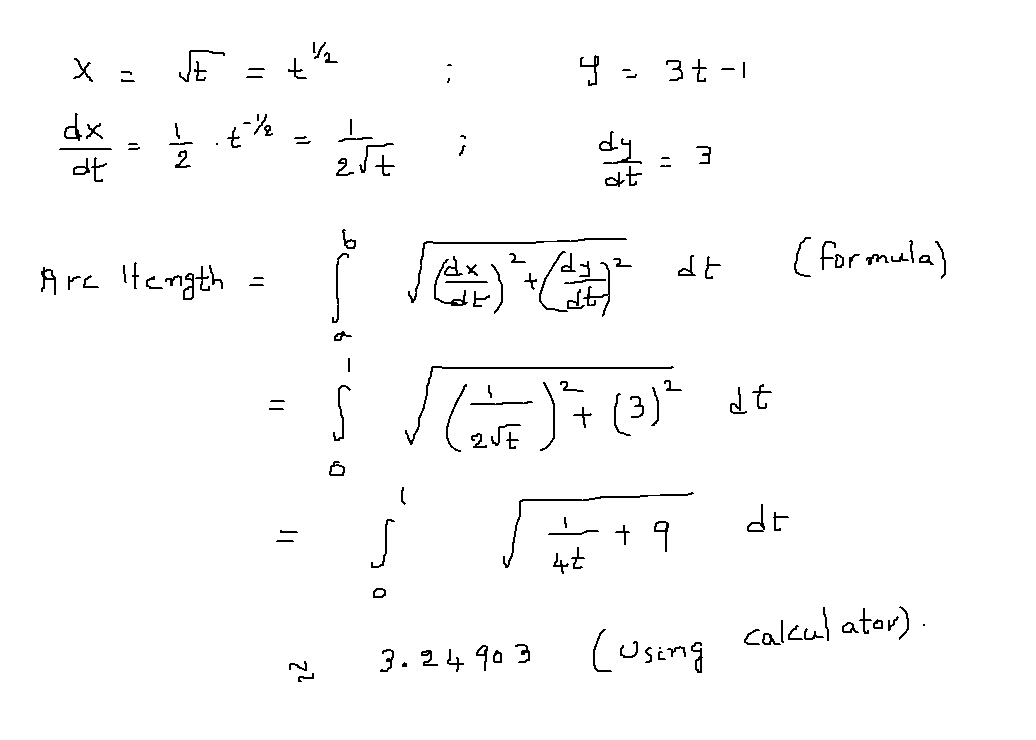 x = √t = t^1/2 ; y = 3t - 1
dx/dt = 1/2 . t^-1/2 = 1/(2√t) ; dy/dt = 3
Arc ltength = ∫_a^b √((dx/dt)^2 + (dy/dt)^2) dt (formula)
= ∫_0^1 √((1/(2√t))^2 + (3)^2) dt
= ∫_0^1 √(1/(4t) + 9) dt
≈ 3.24903 (Using calculator).